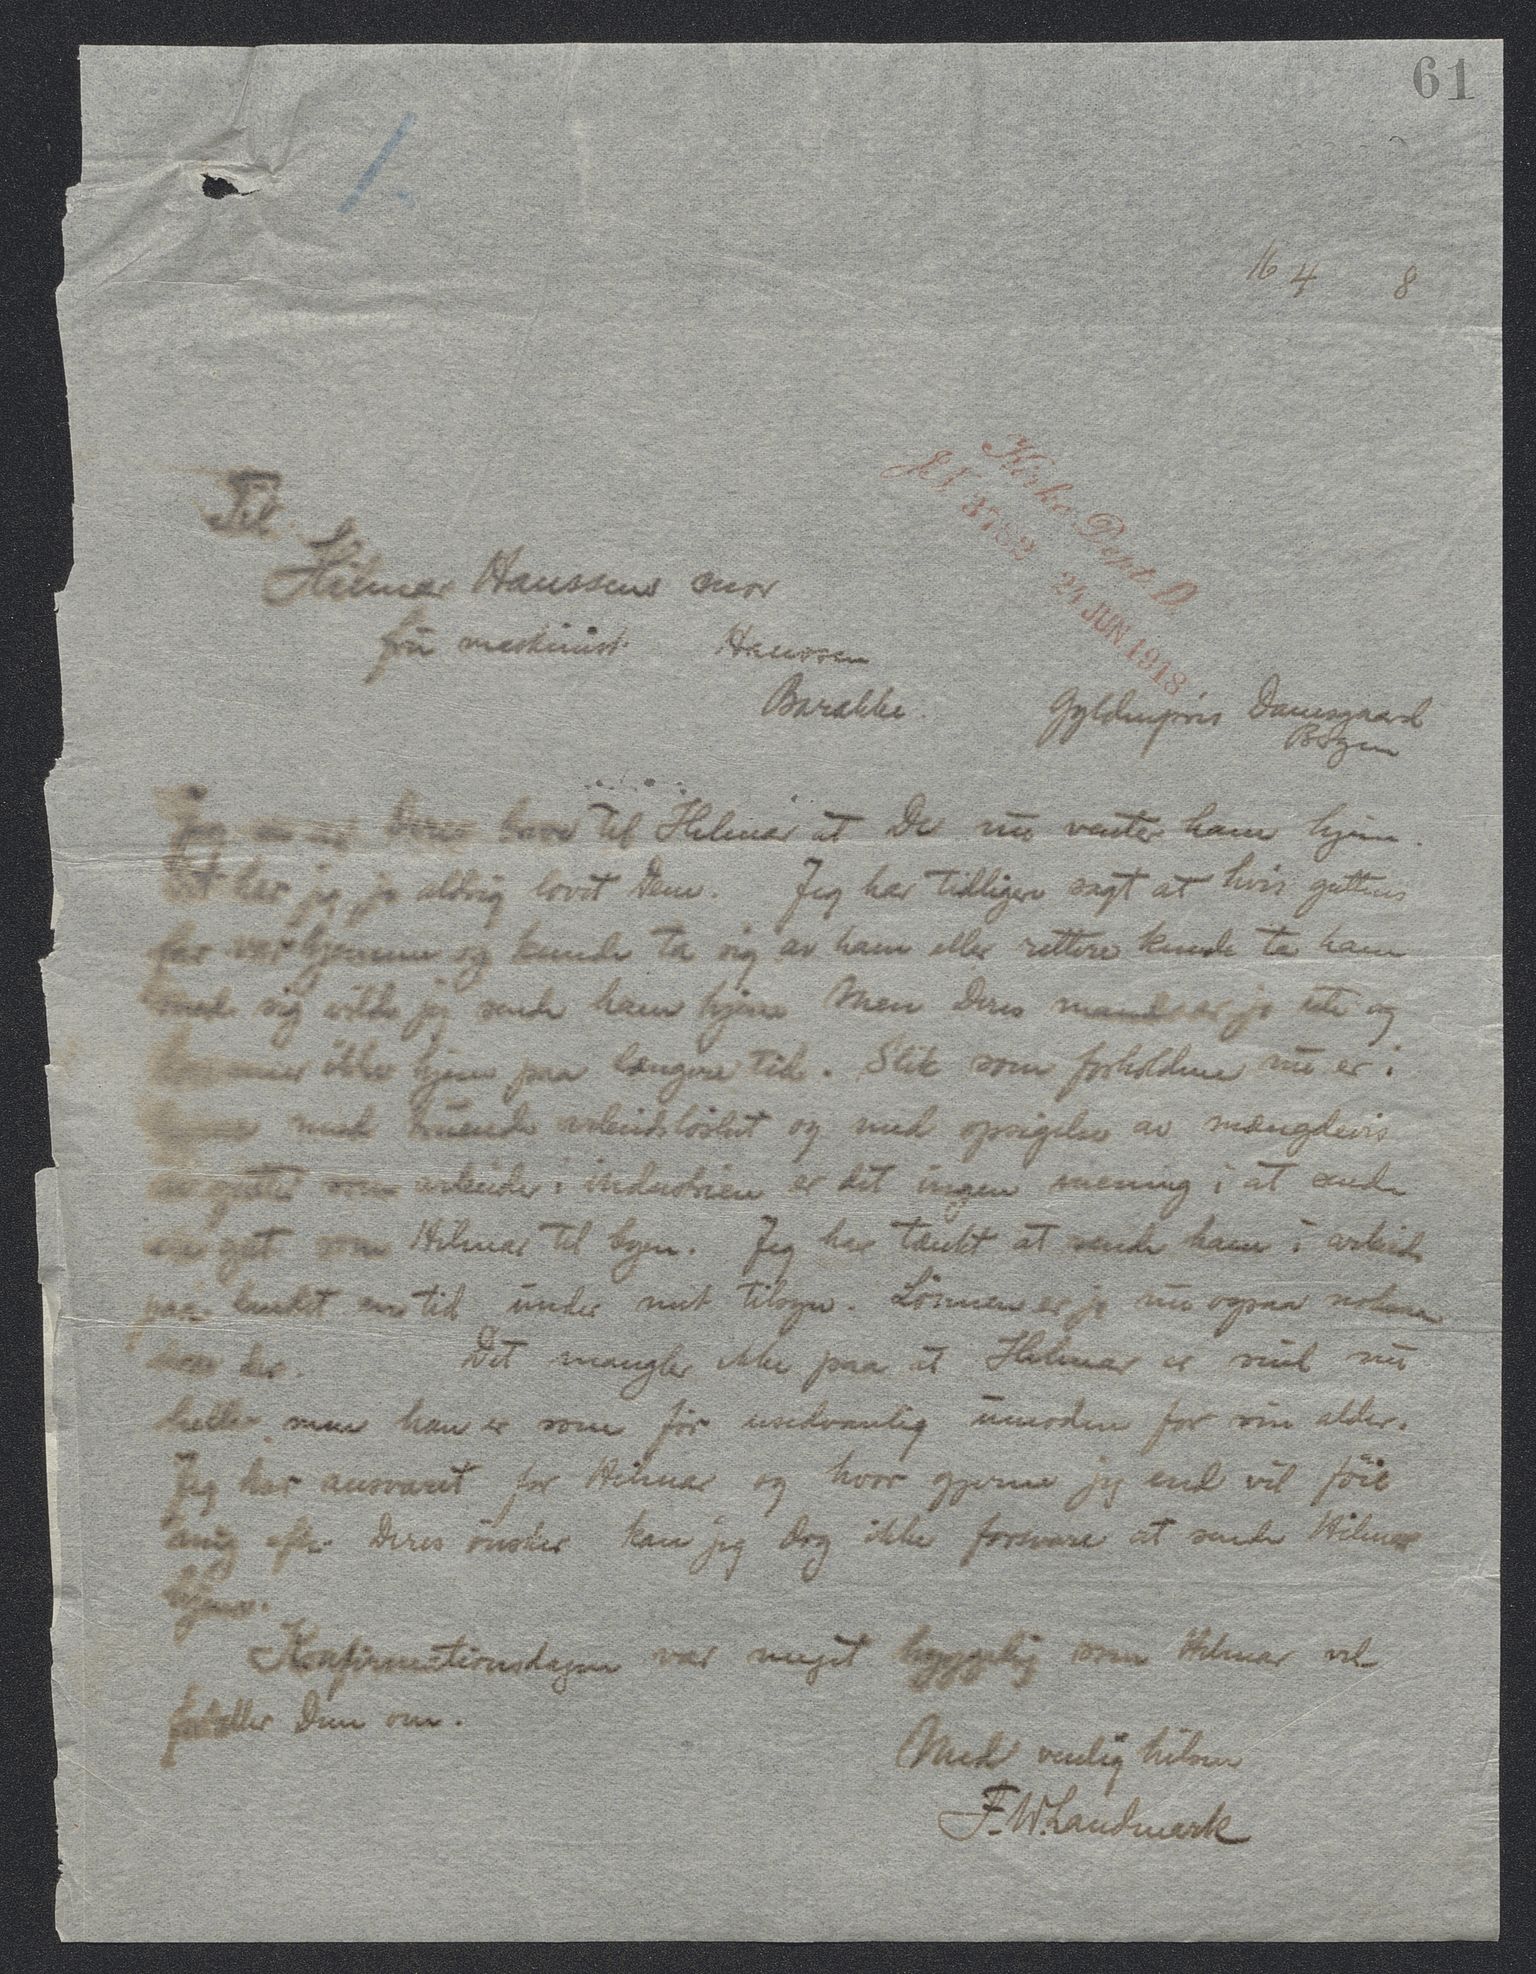 61
1.
16 4 8
Kirke-Dept. D.
J. 3782 24 JUN. 1918
Til
Hilmar Hanssens mor
fru maskinist Hanssen
Barakke. Gyldenpris Damsgaard
Bergen
Jeg ser av Deres brev til Hilmar at De nu venter ham hjem.
Det har jeg jo aldrig lovet Dem. Jeg har tidligere sagt at hvis guttens
far var hjemme og kunde ta sig av ham eller rettere kunde ta ham
med sig vilde jeg sende ham hjem. Men Deres mand er jo ute og
kommer ikke hjem paa længere tid. Slik som forholdene nu er i
med truende arbeidsløshet og med opsigelse av mængdevis
av gutter som arbeider i industrien er det ingen mening i at sende
en gut som Hilmar til byen. Jeg har tænkt at sende ham i arbeid
paa landet en tid under mit tilsyn. Lønnen er jo nu ogsaa
der. Det mangler ikke paa at Hilmar er snil nu
heller men han er som før usedvanlig umoden for sin alder.
Jeg har ansvaret for Hilmar og hvor gjerne jeg end vil føie
mig efter Deres ønsker kan jeg dog ikke forsvare at sende Hilmar
hjem.
Konfirmationsdagen var meget hyggelig som Hilmar vel
fortæller Dem om.
Med venlig hilsen
F. W. Landmark